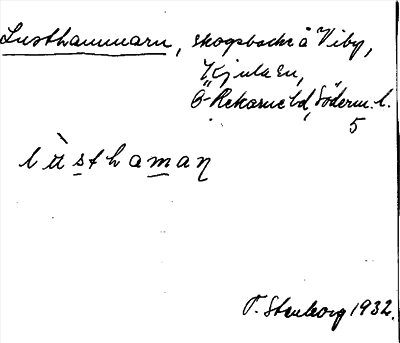 Lusthammarn, skogsbacke å Viby,
Kjula sn,
Ö-Rekarne hd, Söderm. l.
5
lùsthaman
T. Stenborg 1932.